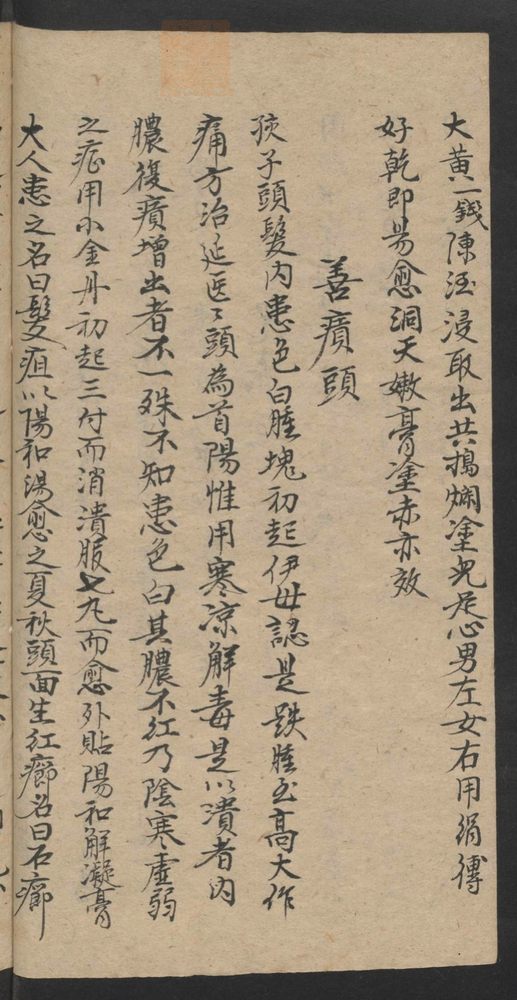 大黄一錢陳酒浸取出共搗爛塗児足心男左女右用絹縛
好乾即易愈洞天嫩膏塗赤亦效
善瘡頭
孩子頭髮内患色白腫塊初起伊母認是跌腫至高大作
痛方治延医〻頭為首陽惟用寒凉解毒是以潰者内
膿復瘡增出者不一殊不知患色白其膿不紅乃陰寒虛弱
之症用小金丹初起三付而消潰服七九而愈外貼陽和解凝膏
大人患之名曰髮疽以陽和湯愈之夏秋頭面生紅癤名曰石癤